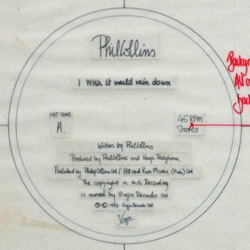 Phil Collins
I Wish It Would Rain Down
A
45 RPM
Stereo
Written by Phil Collins
Produced by Phil Collins and Hugh Padgham
Published by Philip Collins Ltd / Hit and Run Music (Pub) Ltd
The copyright in this Recording
is owned by Virgin Records Ltd
Virgin Records Ltd
Virgin